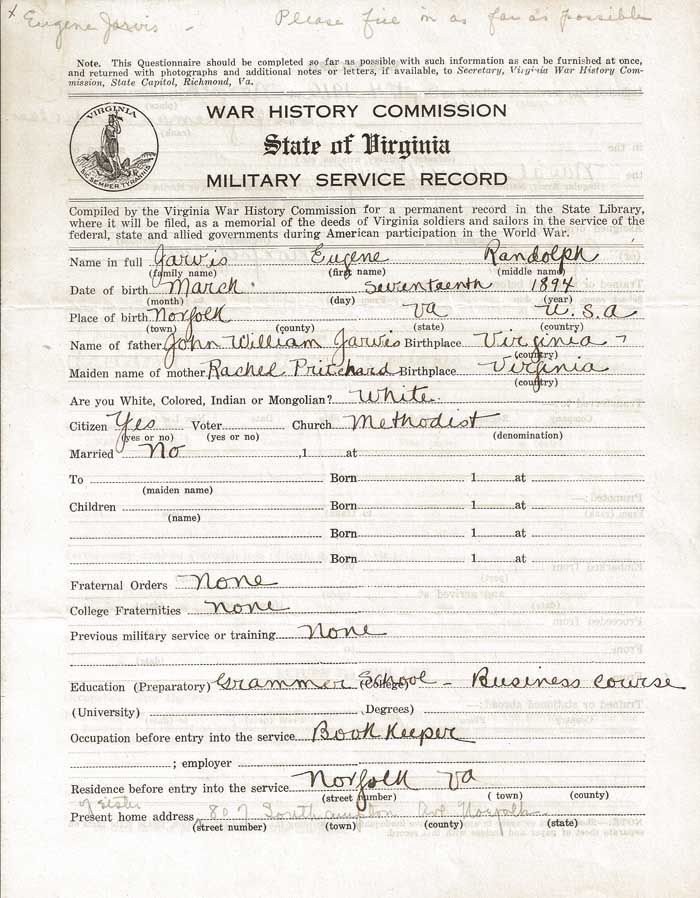 x Eugene Jarvis - Please fill in as far as possible
Note. This Questionnaire should be completed so far as possible with such information as can be furnished at once,
and returned with photographs and additional notes or letters, if available, to Secretary, Virginia War History Com-
mission, State Capitol, Richmond, Va.
VIRGINIA
SIC SEMPER TYRANNIS
WAR HISTORY COMMISSION
State of Virginia
MILITARY SERVICE RECORD
Compiled by the Virginia War History Commission for a permanent record in the State Library,
where it will be filed, as a memorial of the deeds of Virginia soldiers and sailors in the service of the
federal, state and allied governments during American participation in the World War.
Name in full Jarvis Eugene Randolph
(family name) (first name) (middle name)
Date of birth March Seventeenth 1894
(month) (day) (year)
Place of birth Norfolk Va U.S.a
(town) (county) (state) (country)
Name of father John William Jarvis Birthplace Virginia
(country)
Maiden name of mother Rachel Pritchard Birthplace Virginia
(country)
Are you White, Colored, Indian or Mongolian? White
Citizen Yes Voter Church Methodist
(yes or no) (yes or no) (denomination)
Married No , 1 at
To Born 1 at
(maiden name)
Children Born 1 at
(name)
Born 1 at
Born 1 at
Fraternal Orders none
College Fraternities none
Previous military service or training None
Education (Preparatory) Grammer School (College) - Business course
(University) , Degrees)
Occupation before entry into the service Book Keeper
; employer
Residence before entry into the service Norfolk Va
(street number) ( town) (county)
of sister
Present home address 807 Southampton Ave Norfolk
(street number) (town) (county) (state)